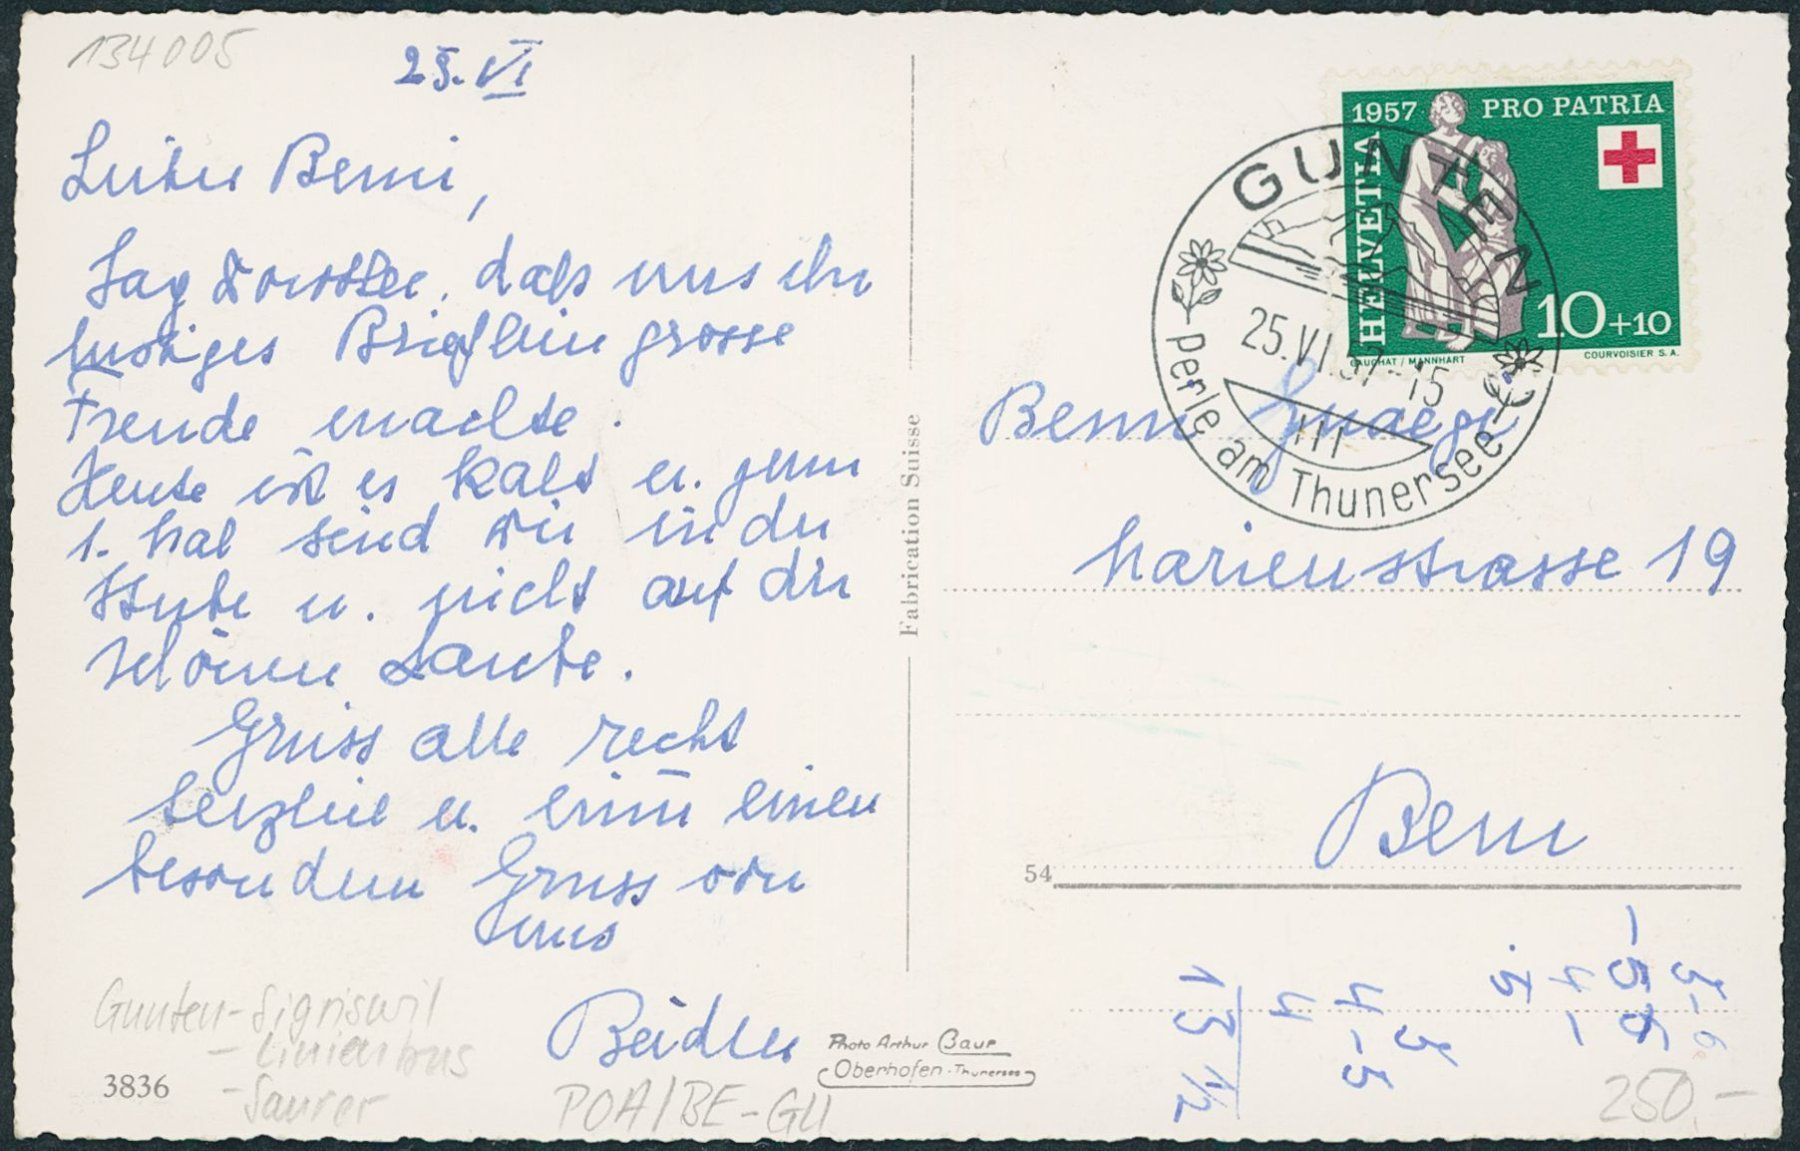 134005
25. VI
Lieber Berni,
Sag Dorothee, dass uns ihr
lustiges Brieflein grosse
Freude machte.
Heute ist es kalt u. zum
1. Mal sind wir in der
Stube u. nicht auf der
schönen Laube.
Grüss alle recht
herzlich u. nimm einen
besondern Gruss von
uns
Beidler
Gunten-Sigriswil
- Linienbus
- Saurer
3836
POA/BE-GU
Photo Arthur Baur
Oberhofen - Thunersee
Fabrication Suisse
1957 PRO PATRIA
HELVETIA
10+10
GAUCHAT / MANNHART
COURVOISIER S.A.
GUNTEN
25.VI.57-15
Perle am Thunersee
Berni
Marienstrasse 19
Bern
54
13 1/2
4
4-5
250.-